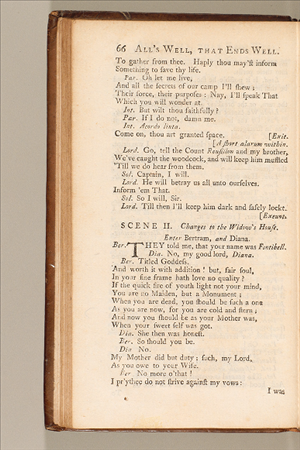 66 ALL'S WELL, THAT ENDS WELL.
To gather from thee. Haply thou may'st inform
Something to save thy life.
Par. Oh let me live,
And all the secrets of our camp I'll shew;
Their force, their purposes: Nay, I'll speak That
Which you will wonder at.
Int. But wilt thou faithfully?
Par. If I do not, damn me.
Int. Acordo linta.
Come on, thou art granted space. [Exit.
[A short alarum within.
Lord. Go, tell the Count Rousillon and my brother,
We've caught the woodcock, and will keep him muffled
'Till we do hear from them.
Sol. Captain, I will.
Lord. He will betray us all unto ourselves.
Inform 'em That.
Sol. So I will, Sir.
Lord. Till then I'll keep him dark and safely lockt.
[Exeunt.
SCENE II. Changes to the Widow's House.
Enter Bertram, and Diana.
Ber. THEY told me, that your name was Fontibell.
Dia. No, my good lord, Diana.
Ber. Titled Goddess.
And worth it with addition! but, fair soul,
In your fine frame hath love no quality?
If the quick fire of youth light not your mind,
You are no Maiden, but a Monument;
When you are dead, you should be such a one
As you are now, for you are cold and stern;
And now you should be as your Mother was,
When your sweet self was got.
Dia. She then was honest.
Ber. So should you be.
Dia. No.
My Mother did but duty; such, my Lord,
As you owe to your Wife.
Ber. No more o'that!
I pr'ythee do not strive against my vows:
I was